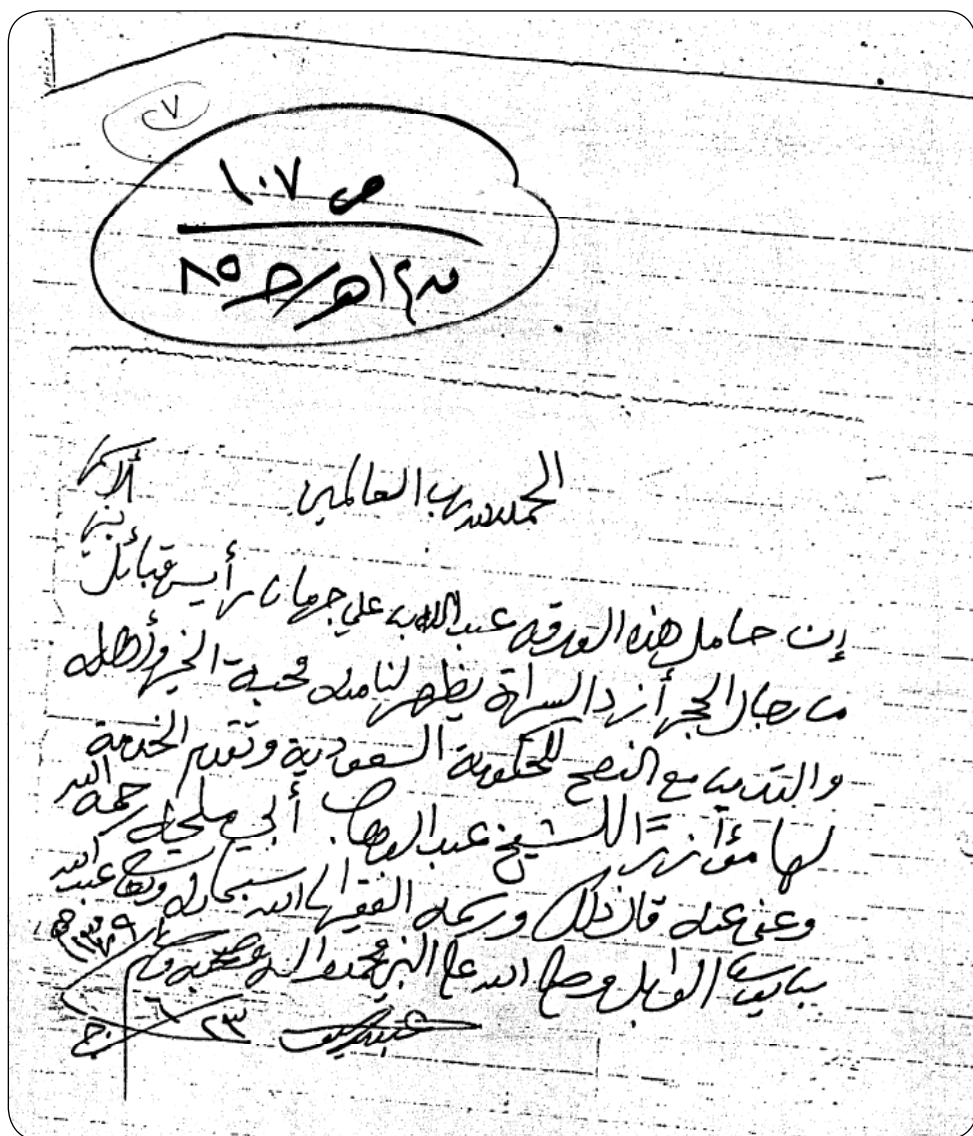 ٢٧
ص ١٠٧
٨٥
الحمد لله رب العالمين
إن حامل هذه الورقة عبد الله بن علي جهمان رأيس قبائل
من رجال الحجر أزد السراة يظهر لنا منه محبة الخير وأهله
والتدين مع النصح للحكومة السعودية وتقديم الخدمة
لها مؤازرًا للشيخ عبد الوهاب أبي ملحة رحمه الله
وعفى عنه قال ذلك ورسمه الفقير إلى الله سبحانه وتعالى عبد الله
بن يوسف الوابل وصلى الله على النبي محمد وآله وصحبه وسلم
٢٣